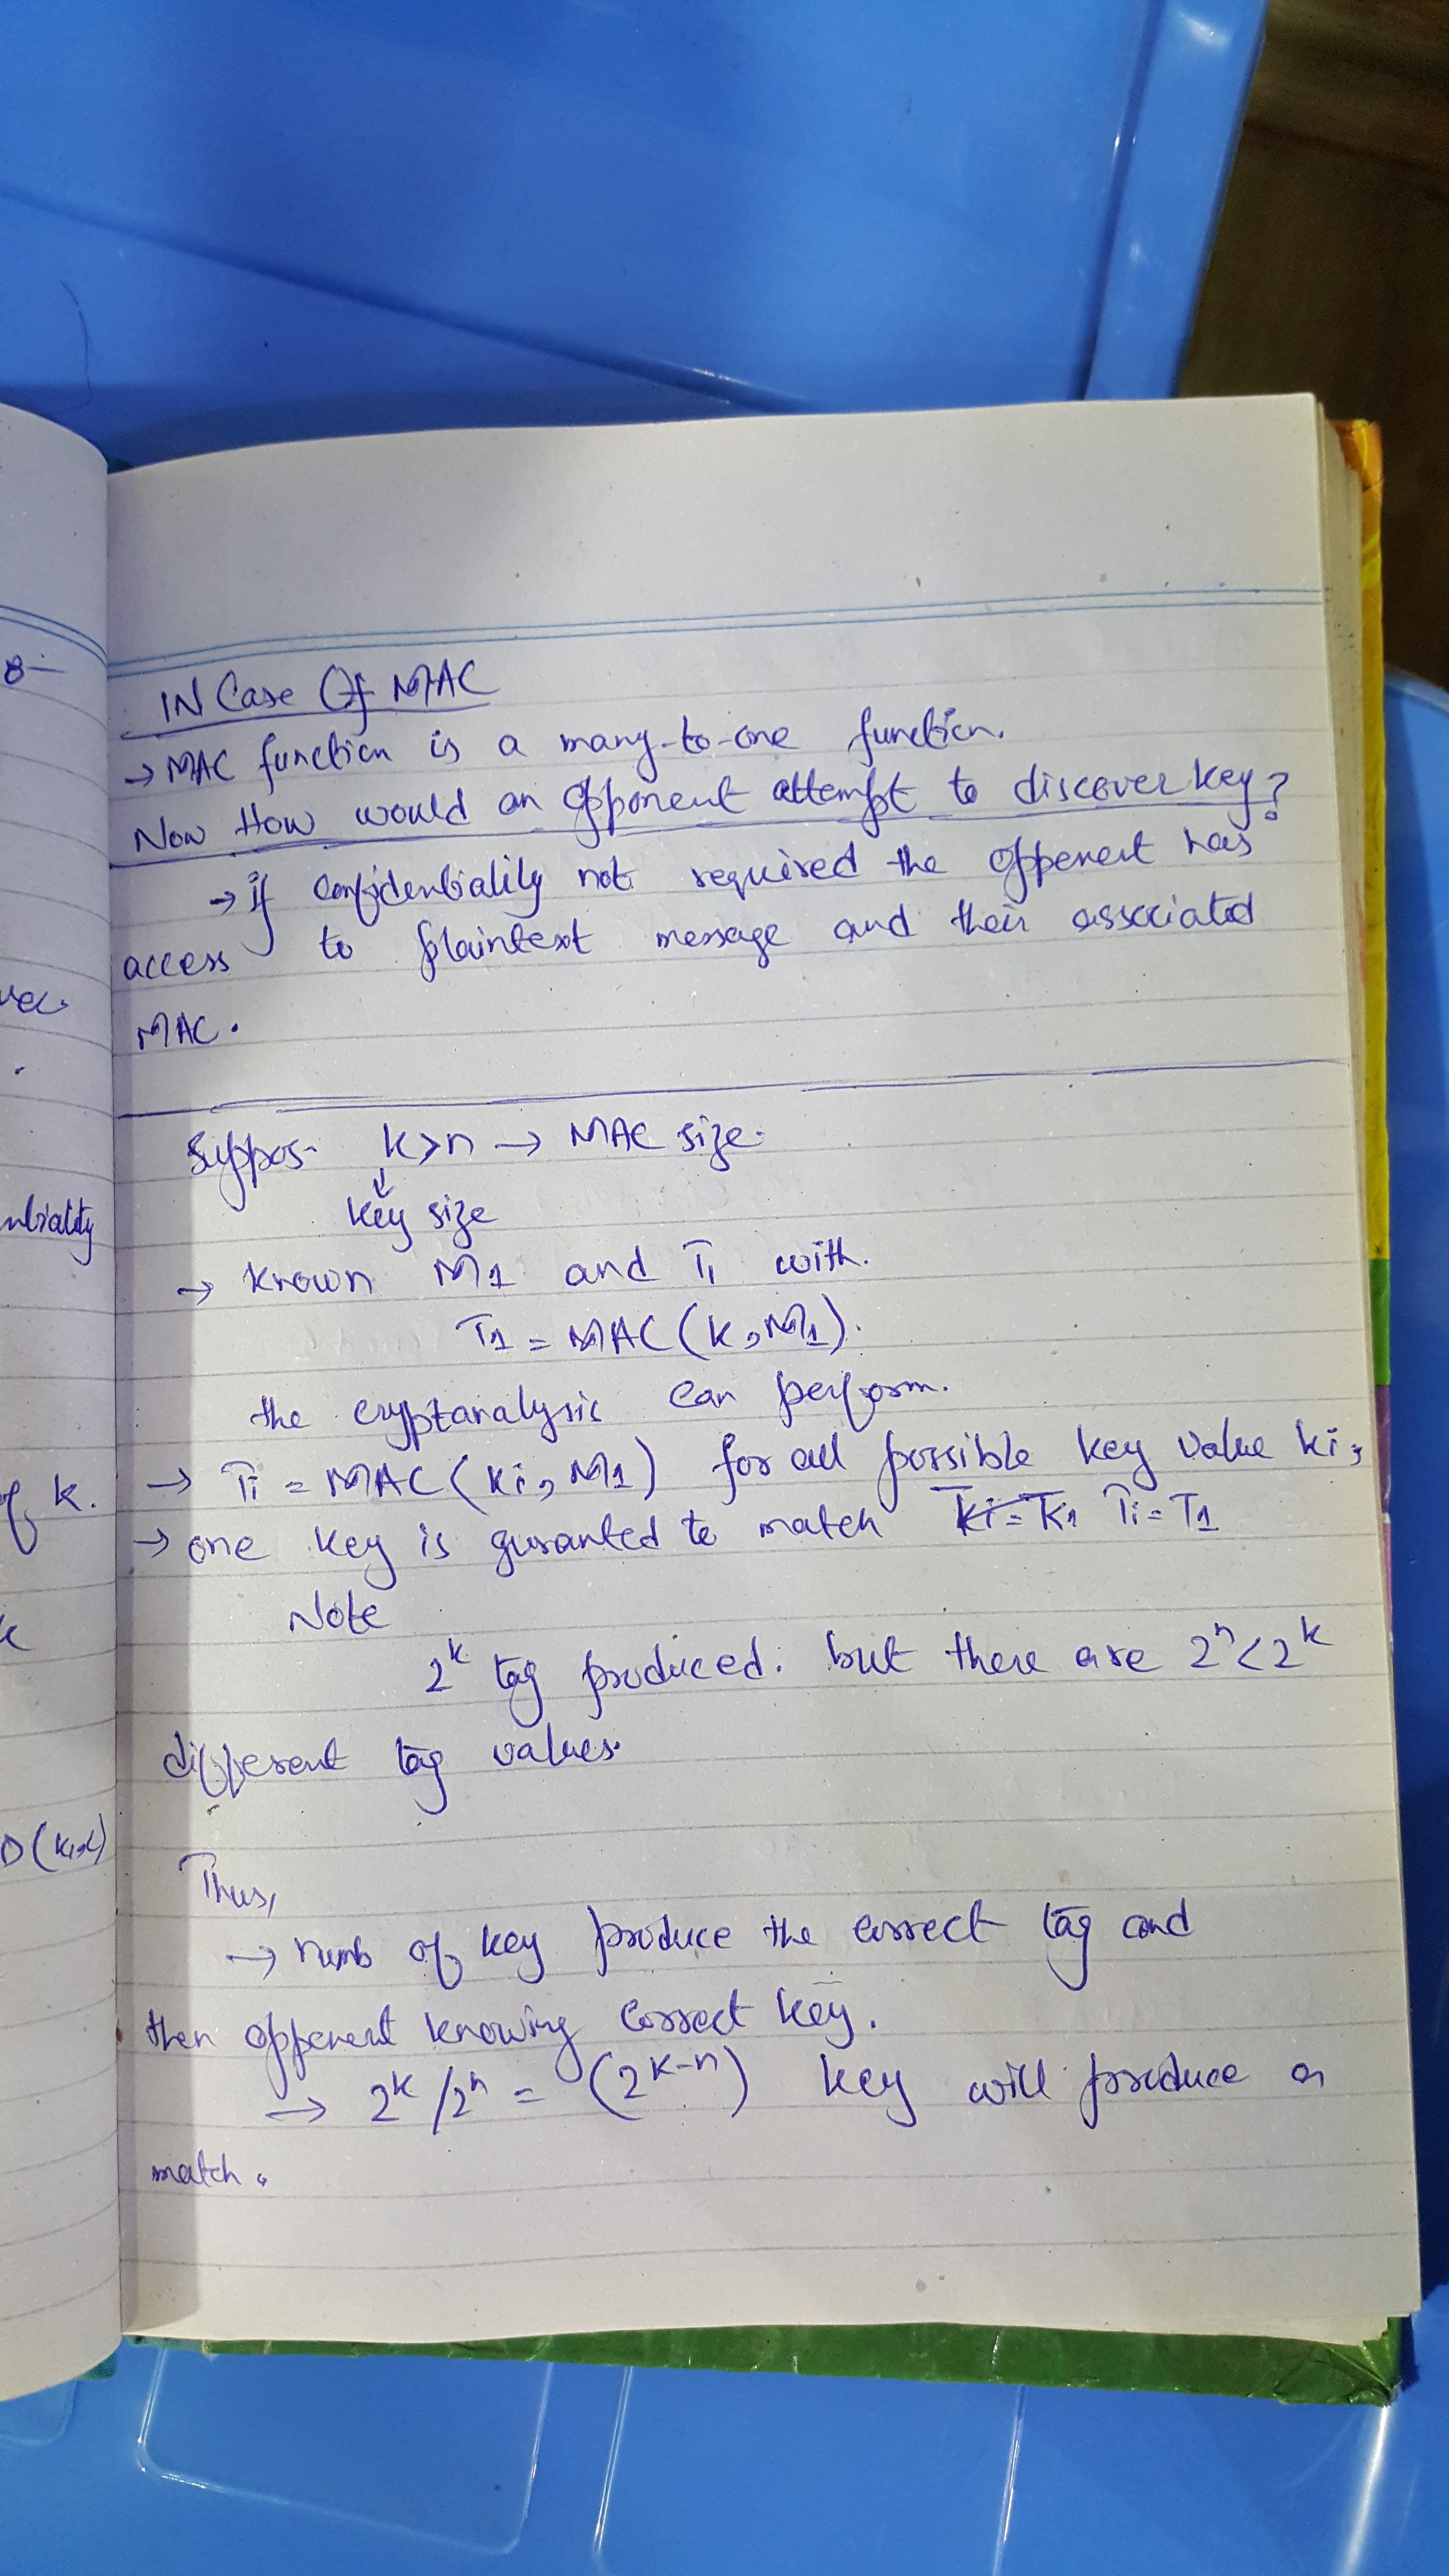 8-
vec.
nliality
of k.
D(k,c)
IN Case Of MAC
→ MAC function is a many-to-one function.
Now How would an opponent attempt to discover key?
→ if confidentiality not required the opponent has
access to plaintext message and their associated
MAC.
Suppos- k>n → MAC size.
↓
key size
→ known M1 and T1 with.
T1 = MAC(k, M1).
the cryptanalysic can perform.
→ Ti = MAC(ki, M1) for all possible key value ki,
→ one key is guranted to match Ti = T1
Note
2^k tag produced. but there are 2^n < 2^k
different tag values.
Thus,
→ numb of key produce the correct tag and
then opponent knowing correct key.
→ 2^k/2^n = (2^k-n) key will produce a
match.